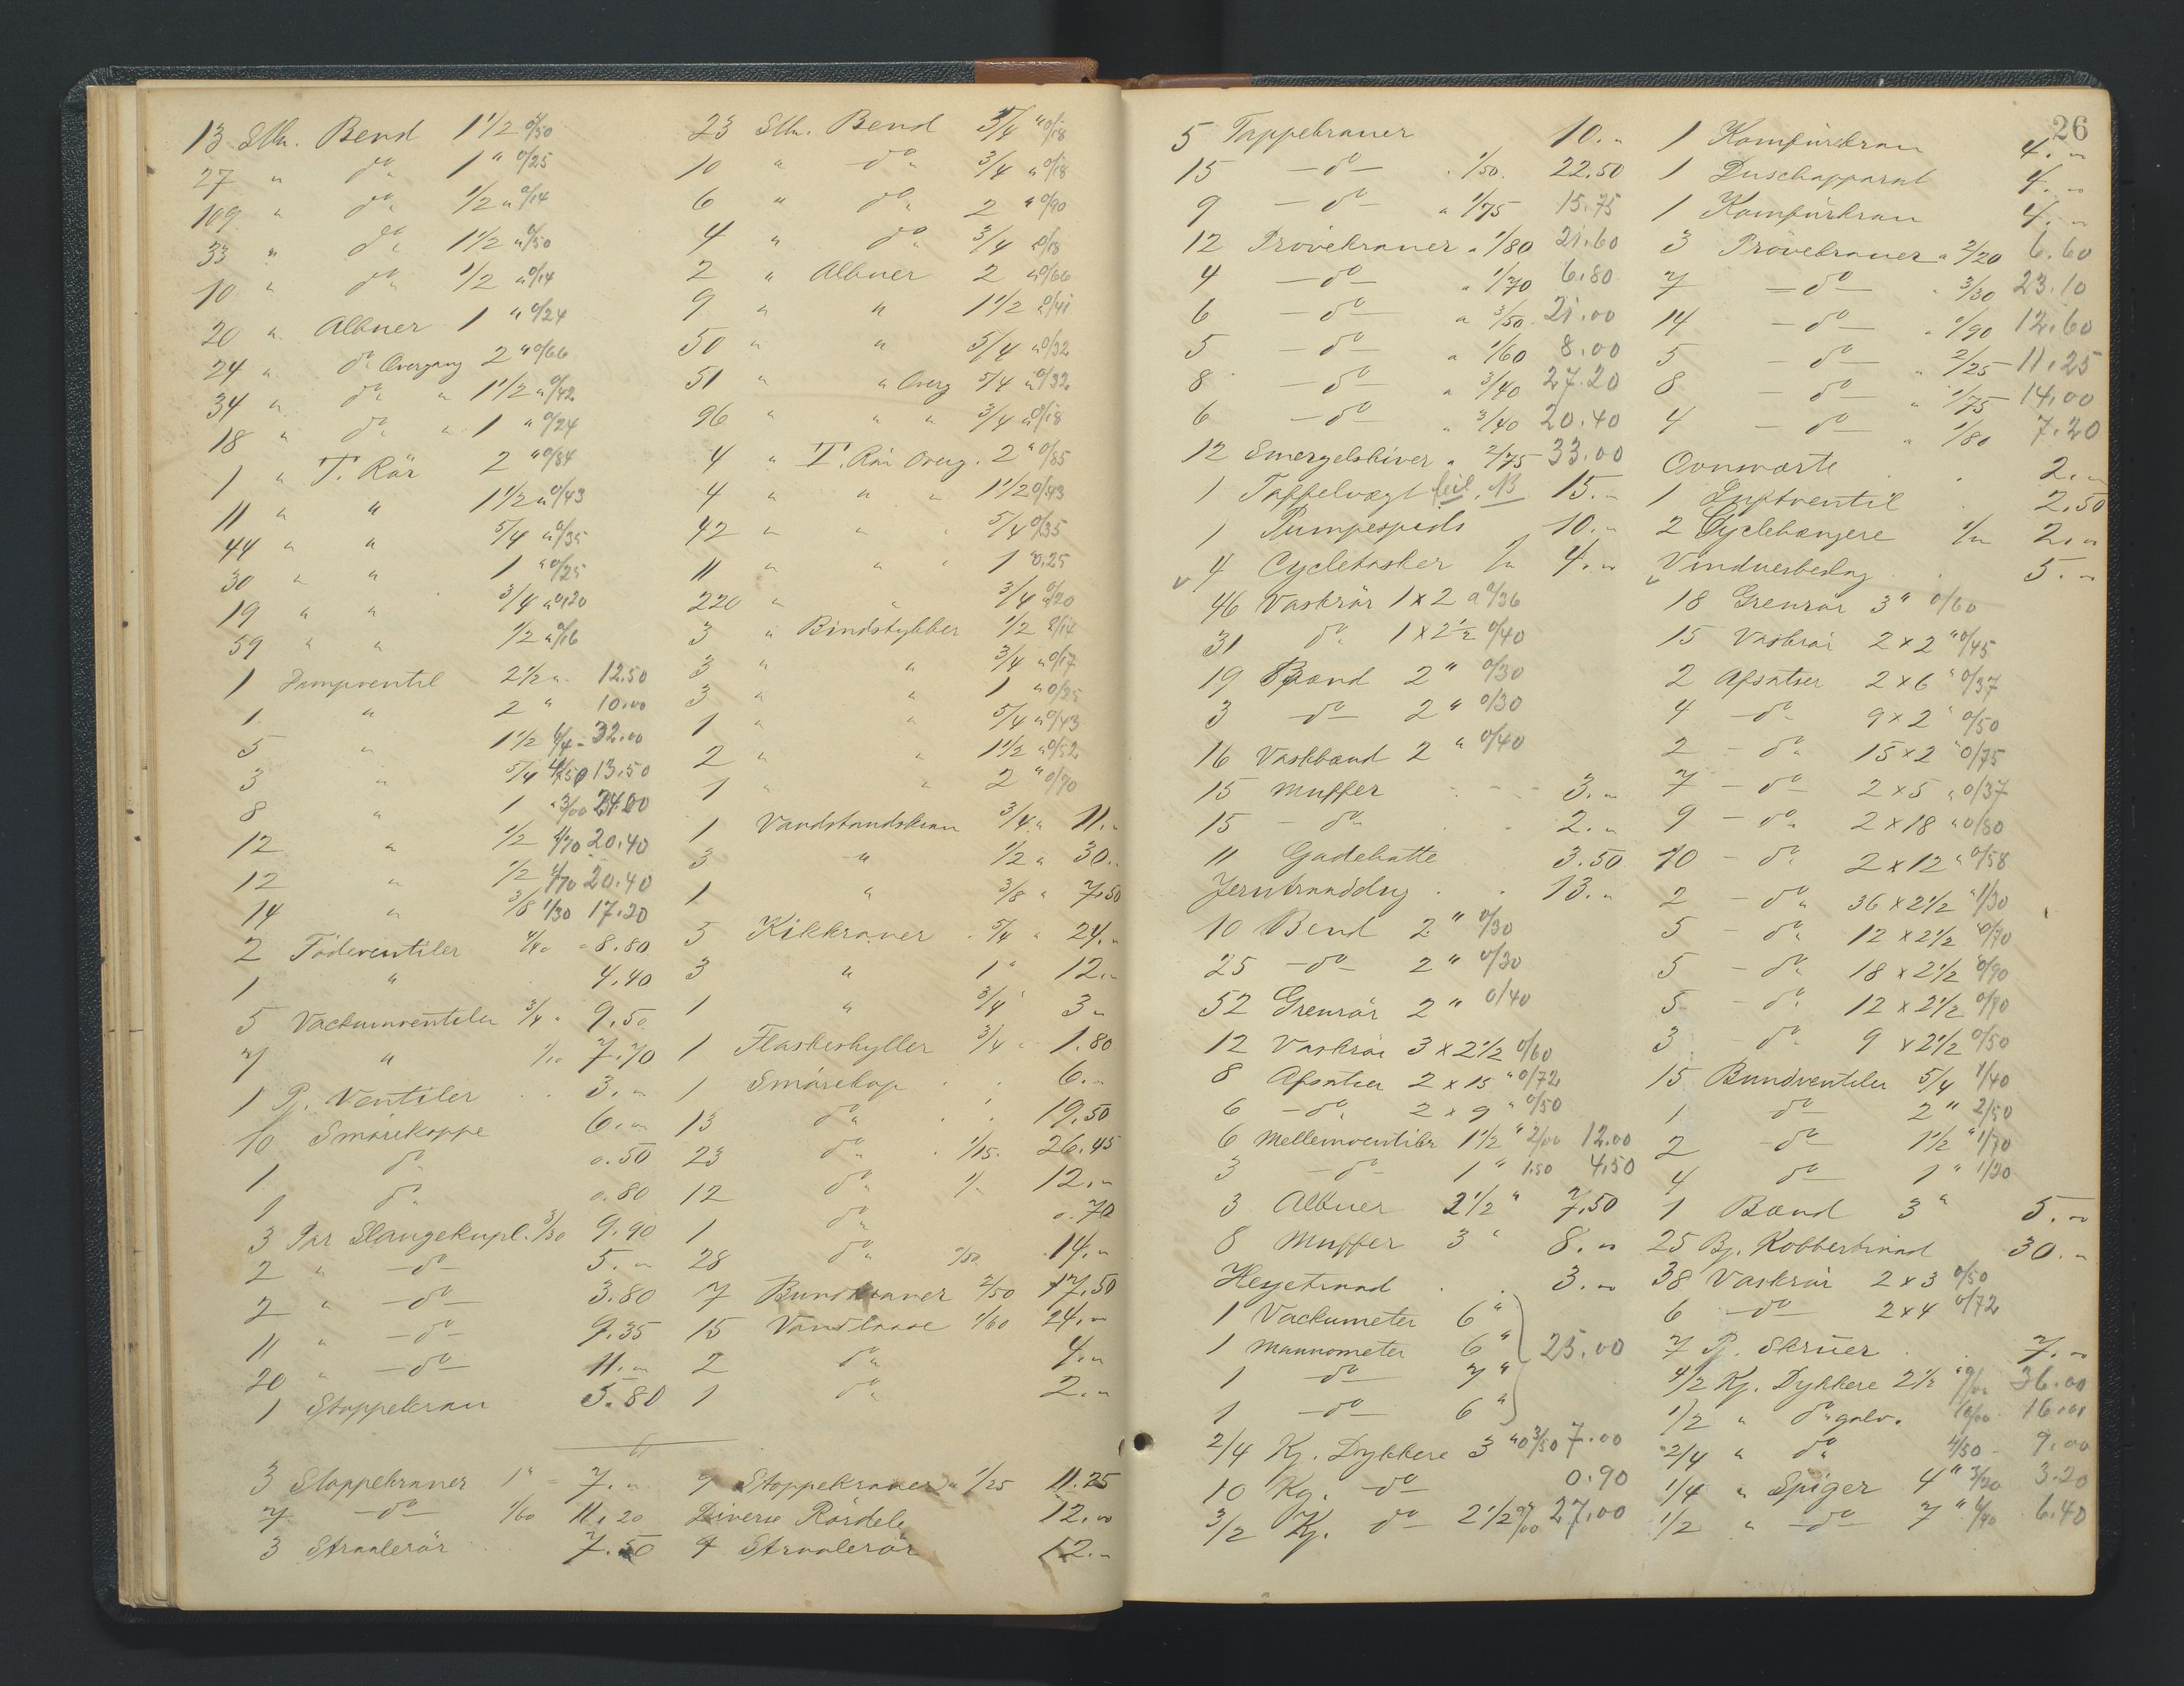 13 Stk. Bend 1 1/2 0/50
27 " do " 1 " 0/25
109 " do " 1/2 " 0/14
33 " do " 1 1/2 " 0/50
10 " do " 1/2 " 0/14
20 " Albuer 1 " 0/24
24 " do Overgang 2 " 0/66
34 " do " " 1 1/2 " 0/42
18 " do " " 1 " 0/24
1 " T. Rör 2 " 0/84
11 " " 1 1/2 " 0/43
44 " " 5/4 " 0/35
30 " " 1 " 0/25
19 " " 3/4 " 0.20
59 " " 1/2 " 0/16
1 Dampventil 2 1/2 " 12.50
1 " 2 " 10.00
5 " 1 1/2 6/4 - 32.00
3 " 5/4 4/50 13.50
8 " 1 " 3/00 24.00
12 " 1/2 1/70 20.40
12 " 1/2 1/70 20.40
14 " 3/8 1/30 17.20
2 Födeventiler 4/40 - 8.80
1 " 4.40
5 Vackumventiler 3/4 " 9.50
7 " 1/10 7.70
1 P. Ventiler . . 3. "
10 Smörekoppe 6. "
1 do " 0.50
1 do " 0.80
3 Par Slangekupl. 3/30 9.90
2 " - do - 5. "
2 " - do - 3.80
11 " - do - 9.35
20 " - do - 11. "
1 Stoppekran 5.80
3 Stoppekraner 1" = 7. "
7 - do - 1/60 11.20
3 Straalerör . . 7.50
23 Stk. Bend 5/4 " 0/18
10 " - do " 3/4 " 0/18
6 " do " 2 " 0/90
4 " do " 3/4 0/18
2 " Albuer 2 " 0/66
9 " " 1 1/2 0/41
50 " " 5/4 " 0/32
51 " " Overg 5/4 " 0/32
96 " " " 3/4 " 0/18
4 " T. Rör Overg. 2 " 0/85
4 " " " 1 1/2 0/43
42 " " " 5/4 0/35
11 " " " 1 " 0.25
220 " " 3/4 0/20
3 " Bindstykker 1/2 0/14
3 " " 3/4 " 0/17
3 " " 1 " 0/25
1 " " 5/4 " 0/43
2 " " 1 1/2 " 0/52
1 " " 2 " 0/70
1 Vandstandskran 3/4 " 11. "
3 " 1/2 " 30. "
1 " 3/8 " 7.50
5 Kikkraner . 5/4 " 24. "
3 " 1 " 12. "
1 " 3/4 " 3 "
1 Flaskeskyller 3/4 " 1.80
1 Smörekop . . 6. "
13 do " . . 19.50
23 do " . 1/15. 26.45
12 do " 1/" 12. "
1 do " 0.70
28 do " 0/50. 14. "
7 Bundkraner 2/50 17.50
15 Vandlaase 1/60 24. "
2 do " 4. "
1 do " 2. "
9 Stoppekraner " 1/25 11.25
Diverse Rördele 12. "
4 Straalerör 12. "
26
5 Tappekraner 10. "
15 - do - . 1/50. 22.50
9 - do - " 1/75 15.75
12 Prövekraner " 1/80 21.60
4 - do - " 1/70 6.80
6 - do - " 3/50. 21.00
5 - do - " 1/60 8.00
8 - do - " 3/40 27.20
6 - do - " 3/40 20.40
12 Smergelskiver " 2/75 33.00
1 Taffelvægt feil. NB 15. "
1 Pumpespids 10. "
v 4 Cycletasker 1/" 4. "
46 Vaskrör 1 x 2 a 0/36
31 do " 1 x 2 1/2 0/40
19 Bænd 2 " 0/30
3 - do - 2 " 0/30
16 Vaskbænd 2 " 0/40
15 Muffer . - - 3. "
15 - do " . . 2. "
11 Gadehatte 3.50
Jerntraaddug . . 13. "
10 Bend 2 " 0/30
25 - do - 2 " 0/30
52 Grenrör 2 " 0/40
12 Vaskrör 3 x 2 1/2 0/60
8 Afsatser 2 x 15 " 0/72
6 - do " 2 x 9 " 0/50
6 Mellemventiler 1 1/2 " 2/00 12.00
3 - do - 1 " 1.50 4.50
3 Albuer 2 1/2 " 7.50
8 Muffer 3 " 8. "
Hegetraad . . 3. "
1 Vackumeter 6 "
1 Mannometer 6 " 25.00
1 - do - 7 "
1 - do - 6 "
2/4 Kj. Dykkere 3 " 3/50 7.00
10 Kg. - do - 0.90
3/2 Kj. do - 2 1/2 9/00 27.00
1 Komfürkran 4. "
1 Duschapparat 4. "
1 Komfürkran 4. "
3 Prövekraner " 2/20 6.60
7 - do - " 3/30 23.10
14 - do - " 0/90 12.60
5 - do - " 2/25 11.25
8 - do - " 1/75 14.00
4 - do - " 1/80 7.20
Ovnsværte . 2. "
1 Luftventil . 2.50
2 Cyclehængere 1/" 2. "
v Vinduesbeslag . . 5. "
18 Grenrör 3 " 0/60
15 Vaskrör 2 x 2 " 0/45
2 Afsatser 2 x 6 " 0/37
4 - do " 9 x 2 " 0/50
2 - do " 15 x 2 " 0/75
7 - do - 2 x 5 " 0/37
9 - do " 2 x 18 " 0/80
10 - do " 2 x 12 " 0/58
2 - do " 36 x 2 1/2 " 1/30
5 - do " 12 x 2 1/2 " 0/70
5 - do " 18 x 2 1/2 0/90
5 - do " 12 x 2 1/2 0/70
3 do " 9 x 2 1/2 0/50
15 Bundventiler 5/4 1/40
1 do - 2 " 2/50
2 - do - 1 1/2 " 1/70
4 do - 1 " 1/20
1 Bænd 3 " 5. "
25 Bj. Kobbertraad 30. "
38 Vaskrör 2 x 3 0/50
6 - do - 2 x 4 0/72
7 P. Skruer . . 7. "
4/2 Kj. Dykkere 2 1/2 " 9/00 36.00
1/2 " do " galv. 16/00 16.00
2/4 " do " 4/50 - 9.00
1/4 " Spiger 4 " 3/20 3.20
1/2 " - do - 7 " 6/40 6.40